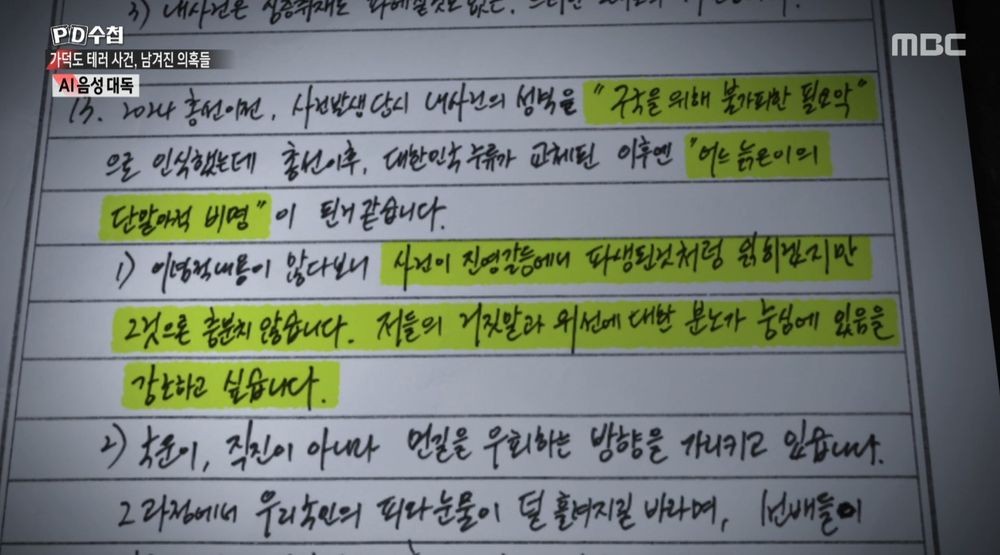 3) 내사건은 심층취재도
PD수첩
가덕도 테러 사건, 남겨진 의혹들
AI 음성 대독
MBC
13. 2024 총선이전, 사건발생당시 내사건의 성벽을 "구국을 위해 불가피한 필요악"
으로 인식했는데 총선이후, 대한민국 주류가 교체된 이후엔 "어느 늙은이의
단말마적 비명"이 된거 같습니다.
1) 이념적내용이 많다보니 사건이 진영갈등에서 파생된것처럼 읽히겠지만
그것으론 충분치 않습니다. 저들의 거짓말과 위선에 대한 분노가 중심에 있음을
강조하고 싶습니다.
2) 국운이, 직진이 아니라 먼길을 우회하는 방향을 가리키고 있습니다.
그 과정에서 우리국민의 피와 눈물이 덜 흘려지길 바라며,